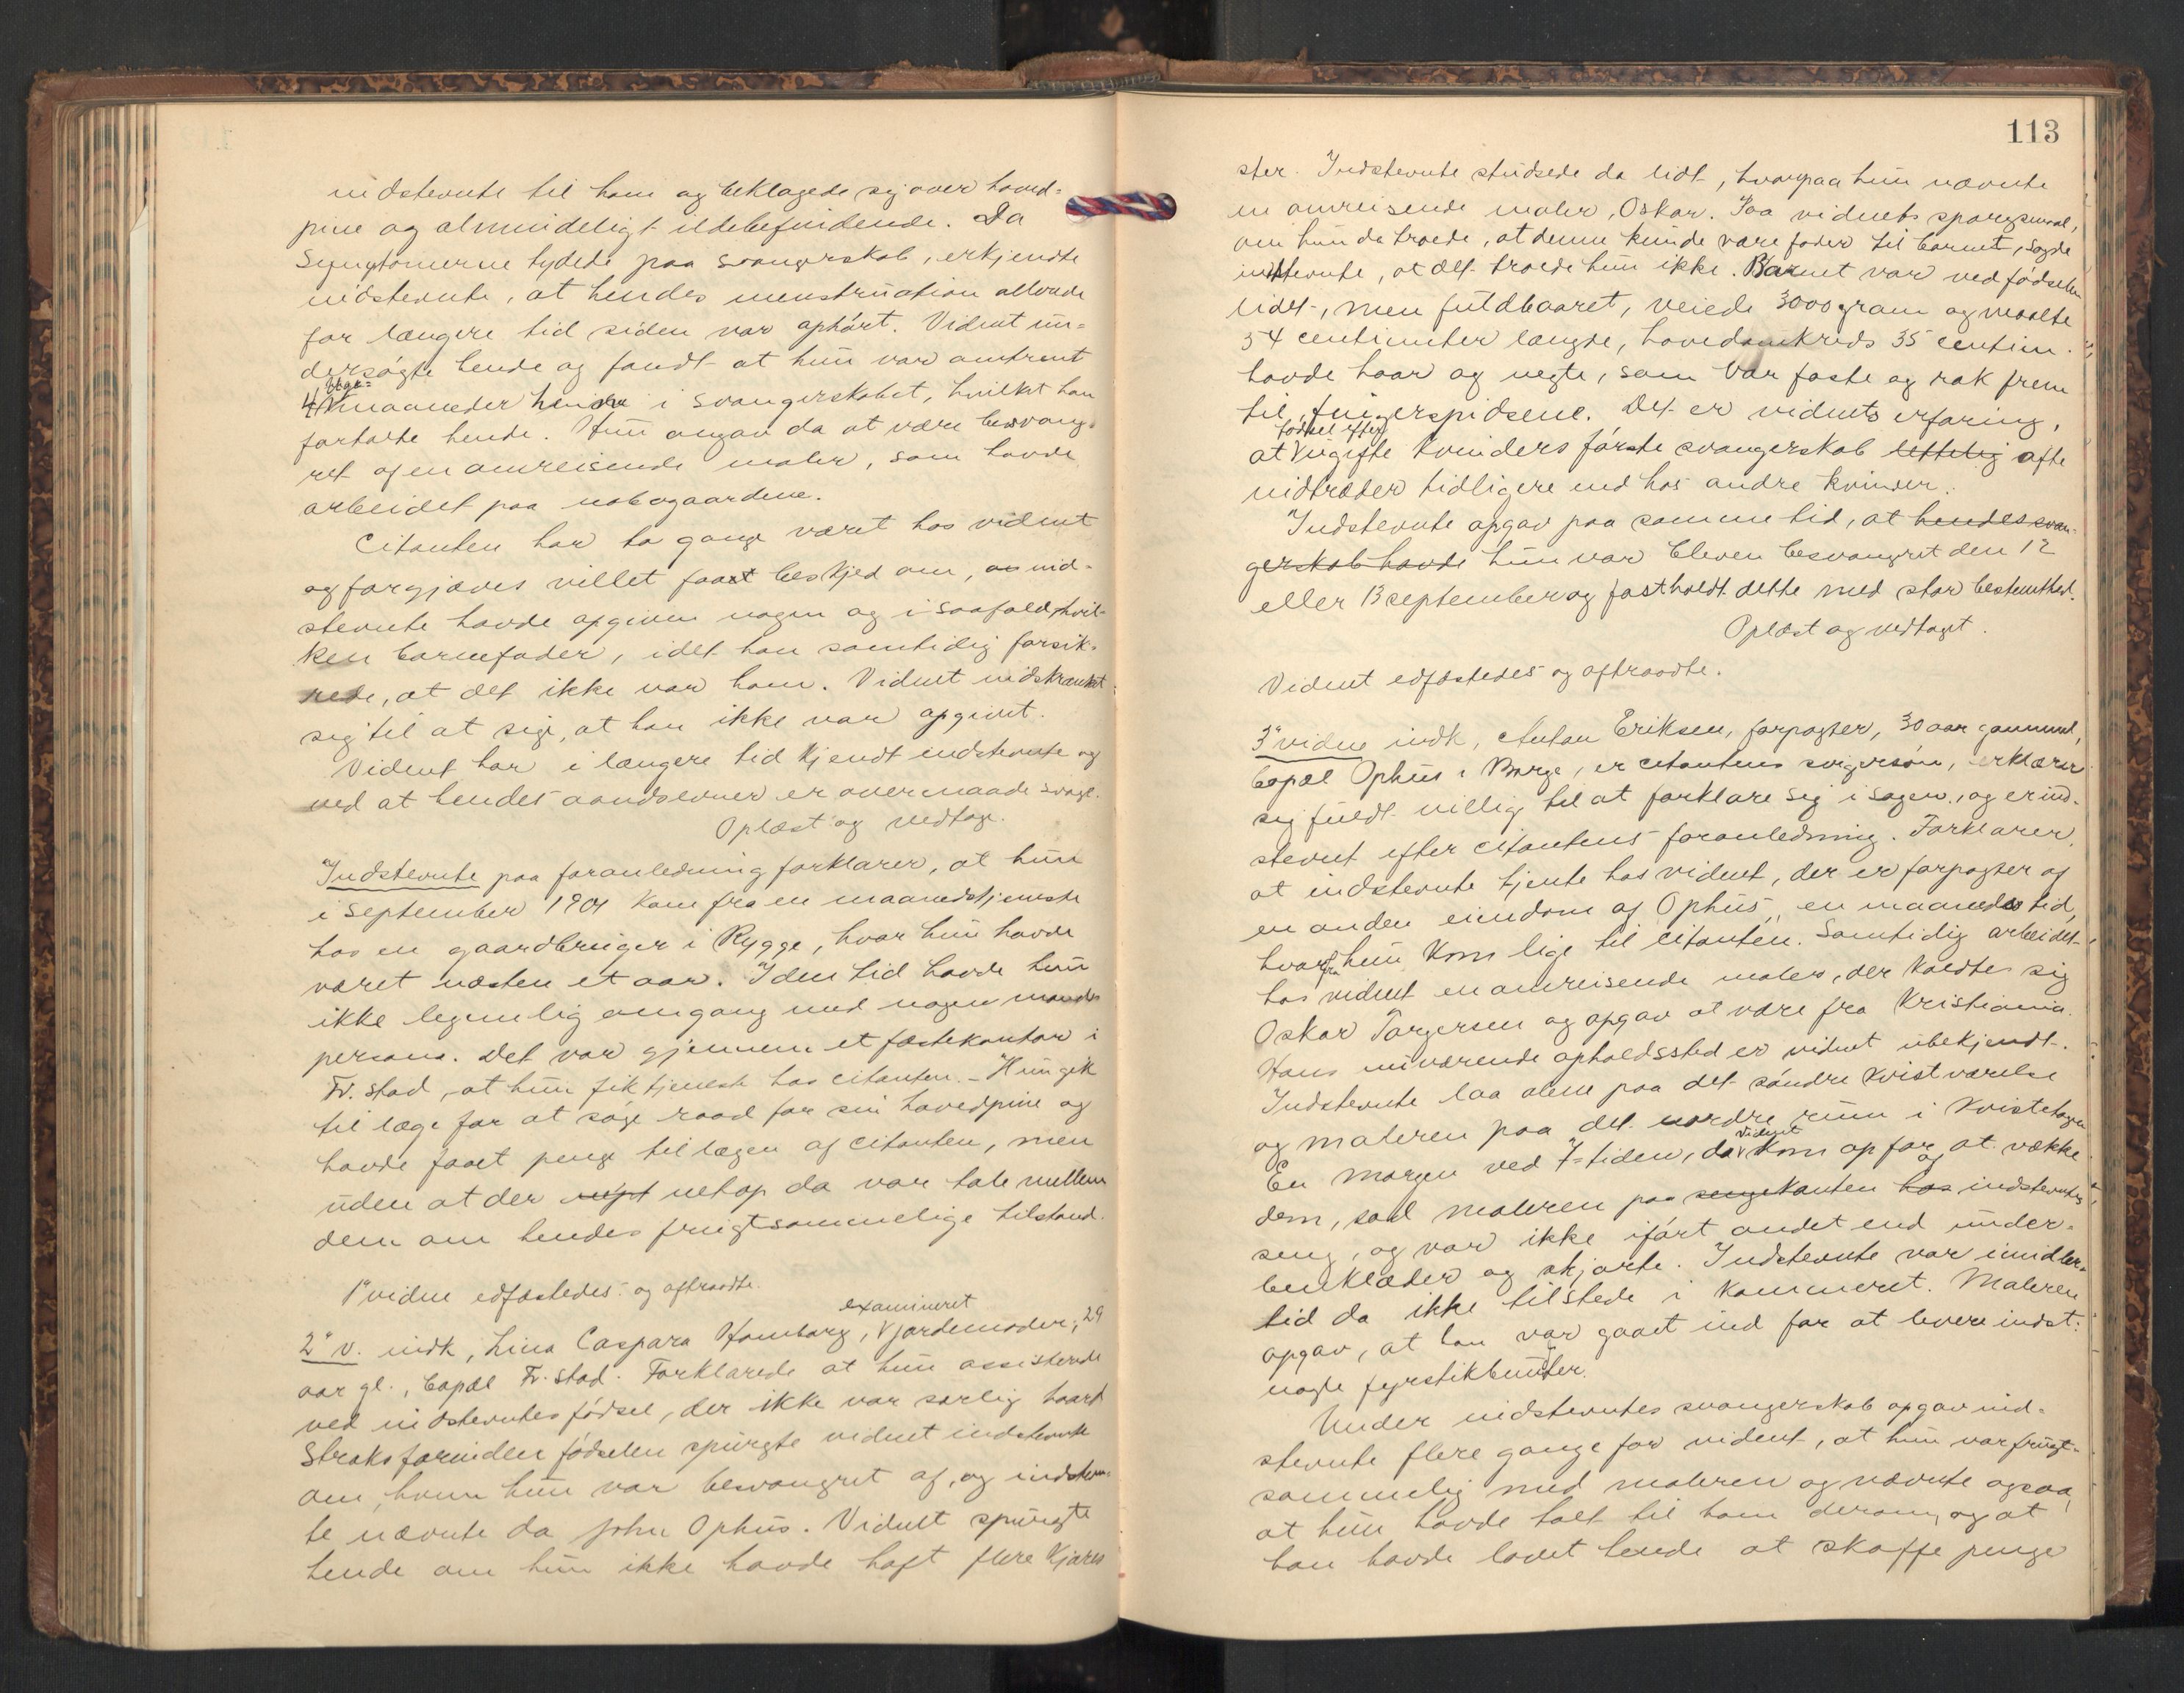 indstevnte til ham og beklagede sig over hoved=
pine og almindeligt ildebefindende. Da
Symptomerne tydede paa svangerskab, erkjendte
indstevnte, at hendes menstruation allerede
for længere tid siden var ophört. Vidnet un=
dersøgte hende og fandt at hun var omtrent
4 maaneder henne i svangerskabet, hvilket han
fortalte hende. Hun angav da at være besvang=
ret af en omreisende maler, som havde
arbeidet paa nabogaardene.
Citanten har to gange været hos vidnet
og forgjæves villet faaet beskjed om, om ind-
stevnte havde opgiven nogen og i saafald hvil-
ken barnefader, idet han samtidig forsik-
rede, at det ikke var ham. Vidnet indskrænket
sig til at sige, at han ikke var opgivet.
Vidnet har i længere tid kjendt indstevnte og
ved at hendes aandsevner er overmaade svage.
Oplæst og vedtage.
Indstevnte paa foranledning forklarer, at hun
i september 1901 kom fra en maanedstjeneste
hos en gaardbruger i Rygge, hvor hun havde
været næsten et aar. I den tid havde hun
ikke legemlig omgang med nogen mands
person. Det var gjennem et fæstekontor i
Fr.stad, at hun fik tjeneste hos citanten. - Hun gik
til læge for at søge raad for sin hovedpine og
havde faaet penge til lægen af citanten, men
uden at der netop da var tale mellem
dem om hendes frugtsommelige tilstand.
1ª vidne edfæstedes og aftraadte.
examineret
2ª v. indk, Lina Caspara Homborg, Vjordemoder, 29
aar gl., bopæl Fr.stad. Forklarede at hun assisterede
ved indstevntes födsel, der ikke var særlig haard
Straks forinden födselen spurgte vidnet indstevnte
om, hvem hun var besvangret af, og indstevn=
te nævnte da John Ophus. Vidnet spurgte
hende om hun ikke havde haft flere kjæres
113
ster. Indstevnte studsede da lidt, hvorpaa hun nævnte
en omreisende maler, Oskar. Paa vidnets spørgsmaal,
om hun da troede, at denne kunde være fader til barnet, sagde
indstevnte, at det troede hun ikke. Barnet var ved födselen
lidet, men fuldbaaret, veiede 3000 gram og maalte
54 centimeter længde, hovedomkreds 35 centim.
havde haar og negle, som var faste og rak frem
til fingerspidsene. Det er vidnets erfaring,
födsel efter
at Vugifte kvinders förste svangerskab lettelig ofte
indtræder tidligere end hos andre kvinder.
Indstevnte opgav paa samme tid, at hendes svan-
gerskab havde hun var bleven besvangret den 12
eller 13 september og fastholdt dette med stor bestemthed.
Oplæst og vedtaget.
Vidnet edfæstedes og aftraadte.
3ª vidne indk, Anton Eriksen, forpagter, 30 aar gammel,
bopæl Ophus i Borge, er citantens svigersön, erklærer
sig fuldt villig til at forklare sig i sagen, og er ind-
stevnt efter citantens foranledning. Forklarer,
at indstevnte tjente hos vidnet, der er forpagter af
en anden eiendom af Ophus, en maaneds tid,
hvorfra hun kom lige til citanten. Samtidig arbeidet
hos vidnet en omreisende maler, der kaldte sig
Oskar Torgersen og opgav at være fra Kristiania.
Hans nuværende opholdssted er vidnet ubekjendt.
Indstevnte laa alene paa det söndre kvistværelse
og maleren paa det nordre rum i kvistetagen
vidnet
En morgen ved 7-tiden, da V kom op for at vække
og
dem, sad maleren paa sengekanten hos indstevntes
seng, og var ikke ifört andet end under-
benklæder og skjorte. Indstevnte var imidler-
tid da ikke tilstede i kammeret. Maleren
opgav, at han var gaaet ind for at levere indst:
nogle fyrstikbunter.
Under indstevntes svangerskab opgav ind-
stevnte flere gange for vidnet, at hun var frugt-
sommelig med maleren og nævnte ogsaa,
at hun havde talt til ham derom, og at
han havde lovet hende at skaffe penge